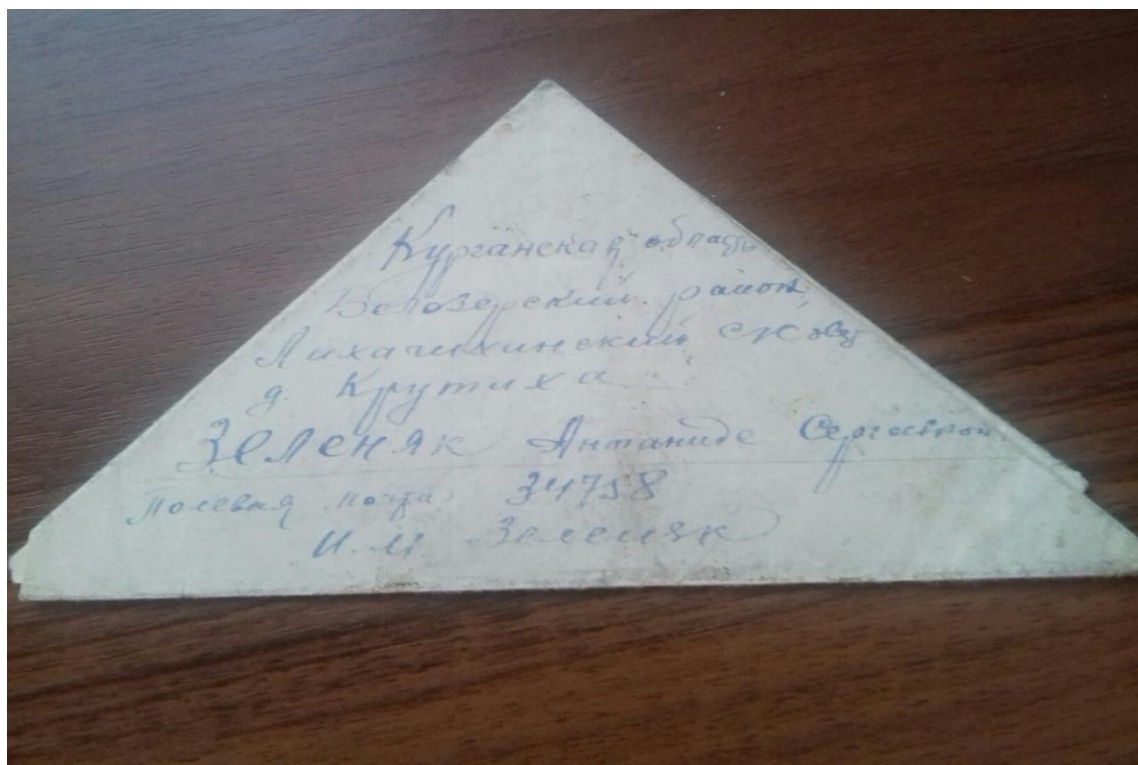 Курганская область
Белозерский район
Лихачихинский с/сов
д. Крутиха
Зеленяк Антаниде Сергеевной
Полевая почта 34758
И. М. Зеленяк